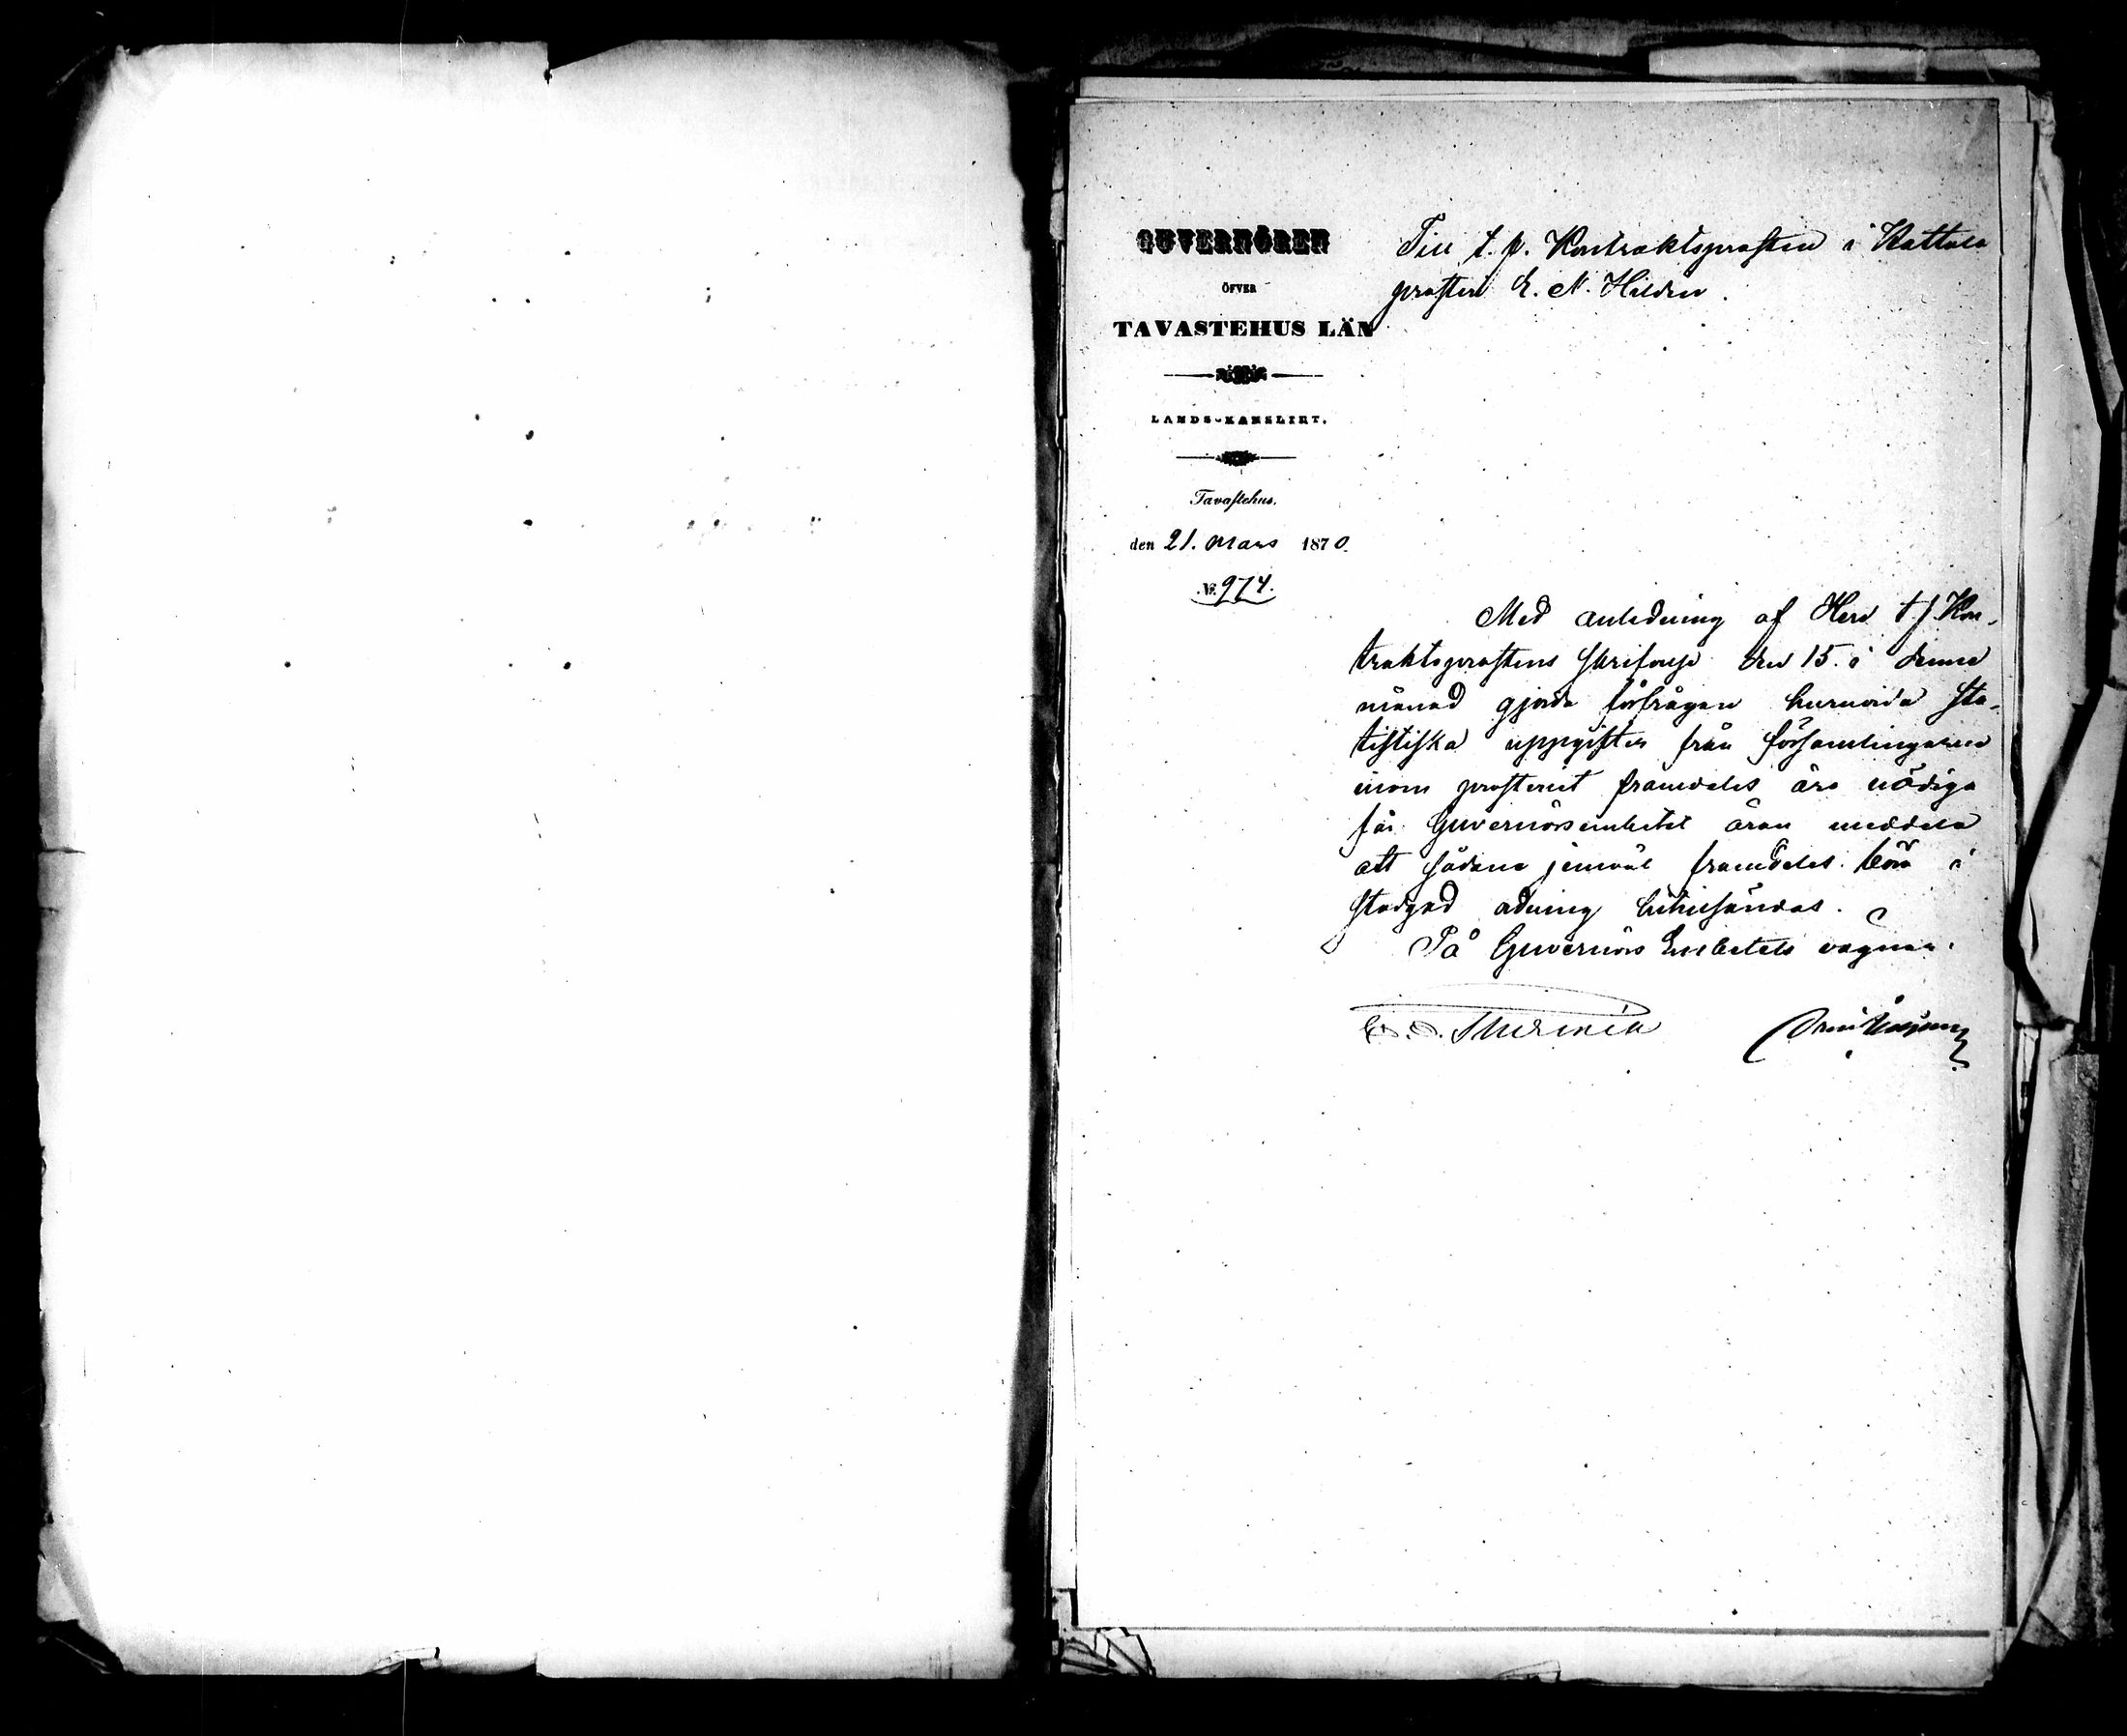 GUVERNÖREN
ÖFVER
TAVASTEHUS LÄN
LANDS-KANSLIET.
Tavastehus.
den 21. Mars 1870.
№ 974.
Till t. f. Kontraktsprosten i Hattula
prosteri E. N. Hildén.
Med anledning af Herr t. f. Kon-
traktsprostens skrifvelse den 15. i denne
månad gjorda förfrågan huruvida sta-
tistiska uppgifter från församlingarne
inom prosteriet framdeles äro nödiga
får Guvernörsembetet äran meddela
att sådana jemväl framdeles böra i
stadgad ordning hitinsändas.
På Guvernörs Embetets vägnar.